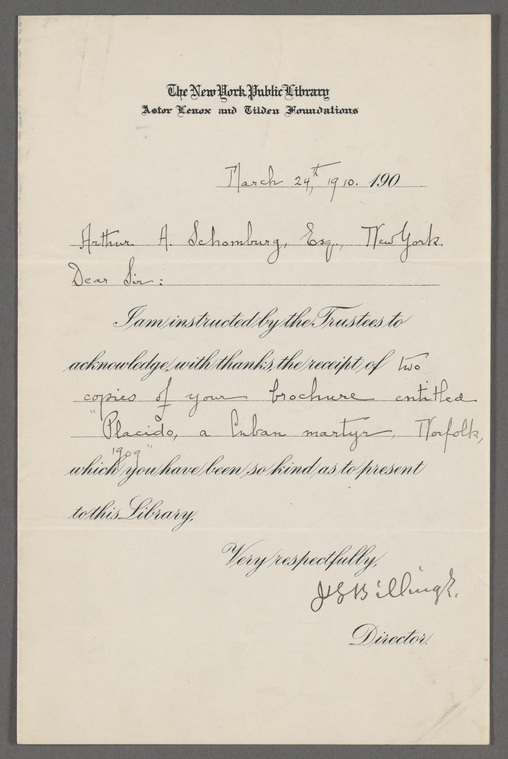 The New York Public Library
Astor Lenox and Tilden Foundations
March 24th, 1910. 190
Arthur A. Schomburg, Esq., New York.
Dear Sir:
I am instructed by the Trustees to
acknowledge, with thanks, the receipt of two
copies of your brochure entitled
"Placido, a Cuban martyr, Norfolk,
1909"
which you have been so kind as to present
to this Library.
Very respectfully,
J S Billings.
Director.